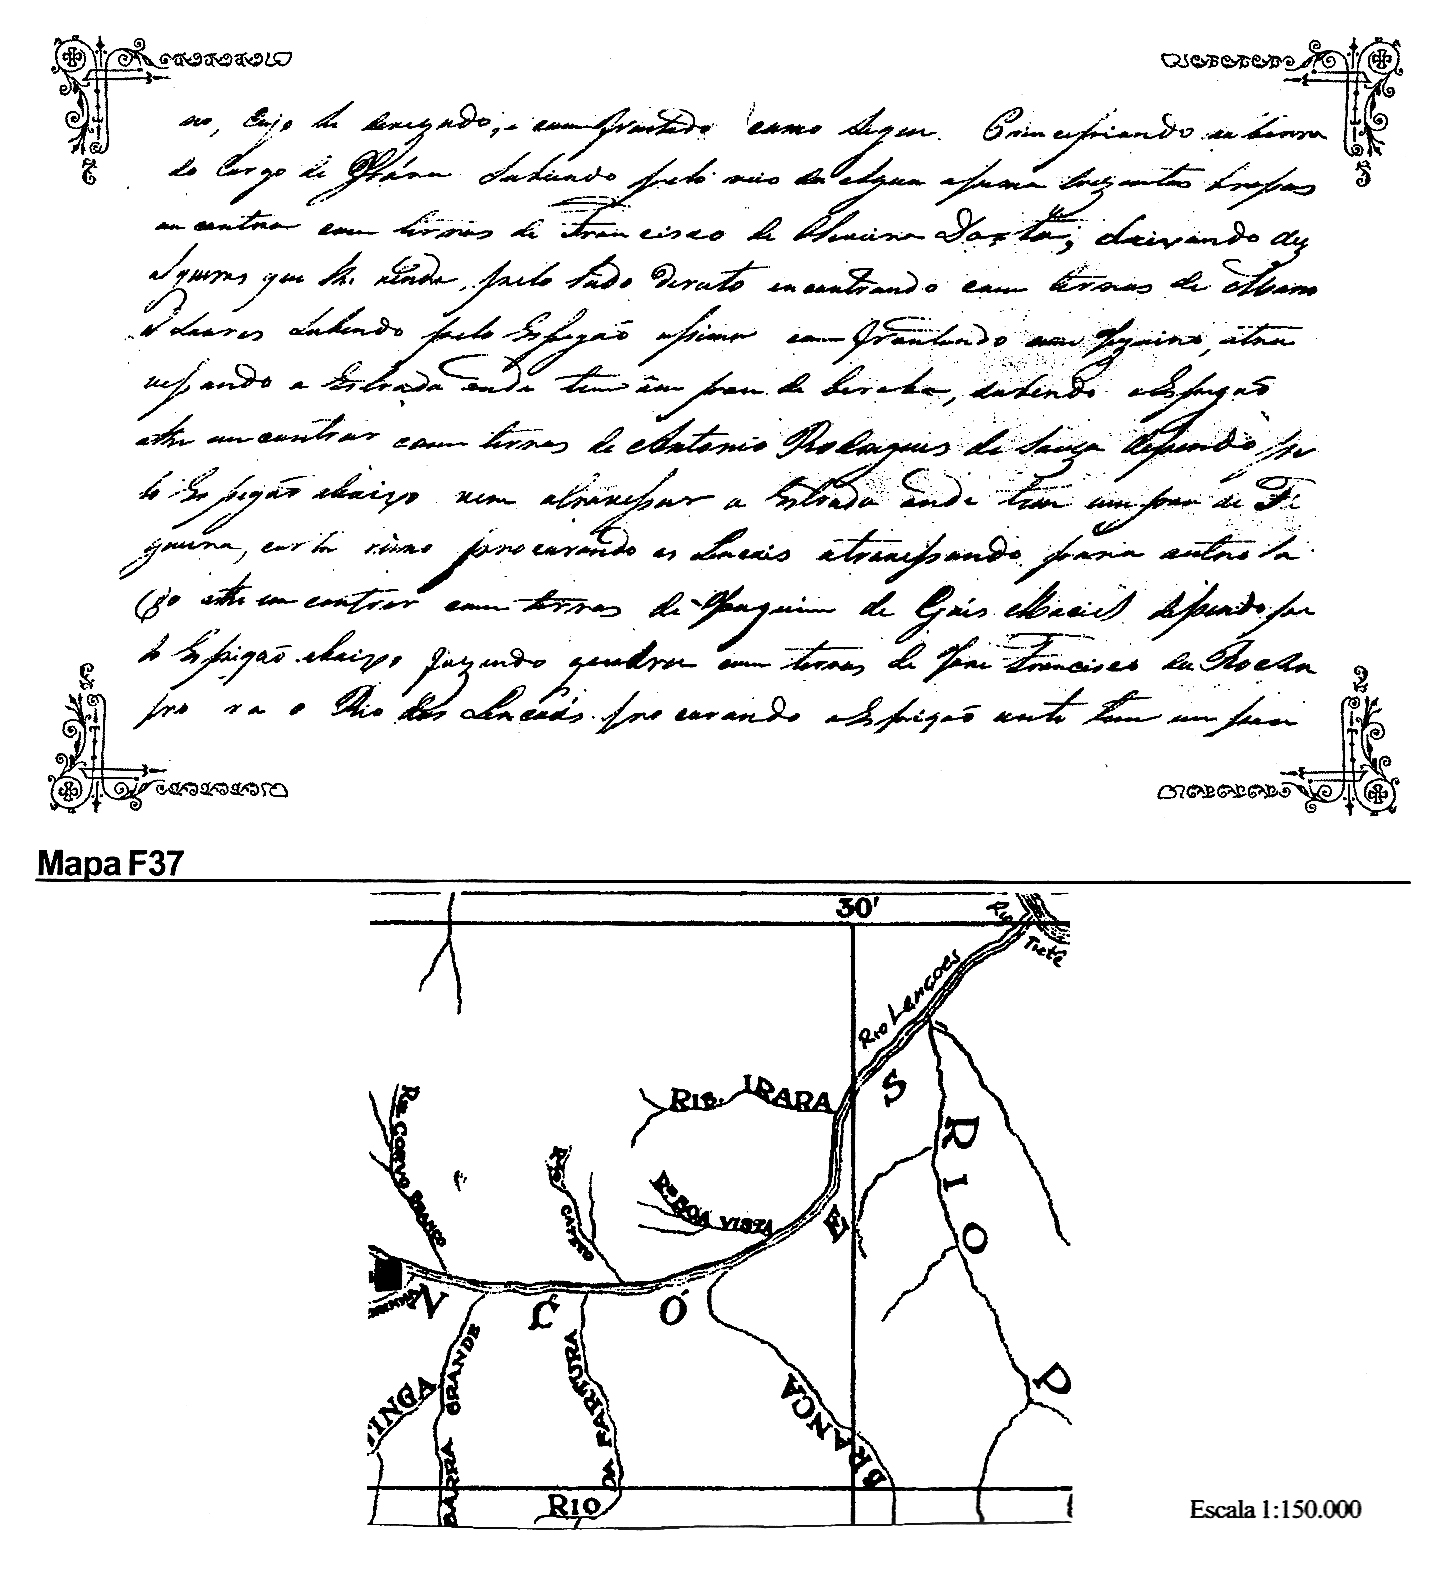 no, cujo he cercado, e comfrontado como segue. Princepiando na barra
do Corgo de Ibára Subindo pelo veio da Agua asima trezentas brassas
encontra com terras de Francisco de Oliveira deixando dez
alqueires que lhe vende, pelo lado direito encontrando com terras de
Soares Subindo pelo Espigão assima comfrontando com atra
vessando a Estrada onde tem um pau de subindo o Espigão
athe encontrar com terras de Antonio Rodrigues de Souza dessendo pe
lo Espigão abaixo vem atravessar a Estrada onde tem um pau de Fi
gueira, corta rumo procurando os Lencois atravessando para outro la
do athe encontrar com terras de Joaquim de Gois Maciel dessendo pe
lo Espigão abaixo fazendo quadra com terras de Jose Francisco da Rocha
para o Rio dos Lencois procurando o Espigão onde tem um pau
Mapa F37
30'
Rio
Tietê
Rio Lançoes
S
RIB. IRARA
RIO
RIB. CORVO BRANCO
RIB.
Rb BOA VISTA
E
N
Ç
Ó
BARRA GRANDE
TINGA
DA FARTURA
RIO
BRANCA
P
Escala 1:150.000